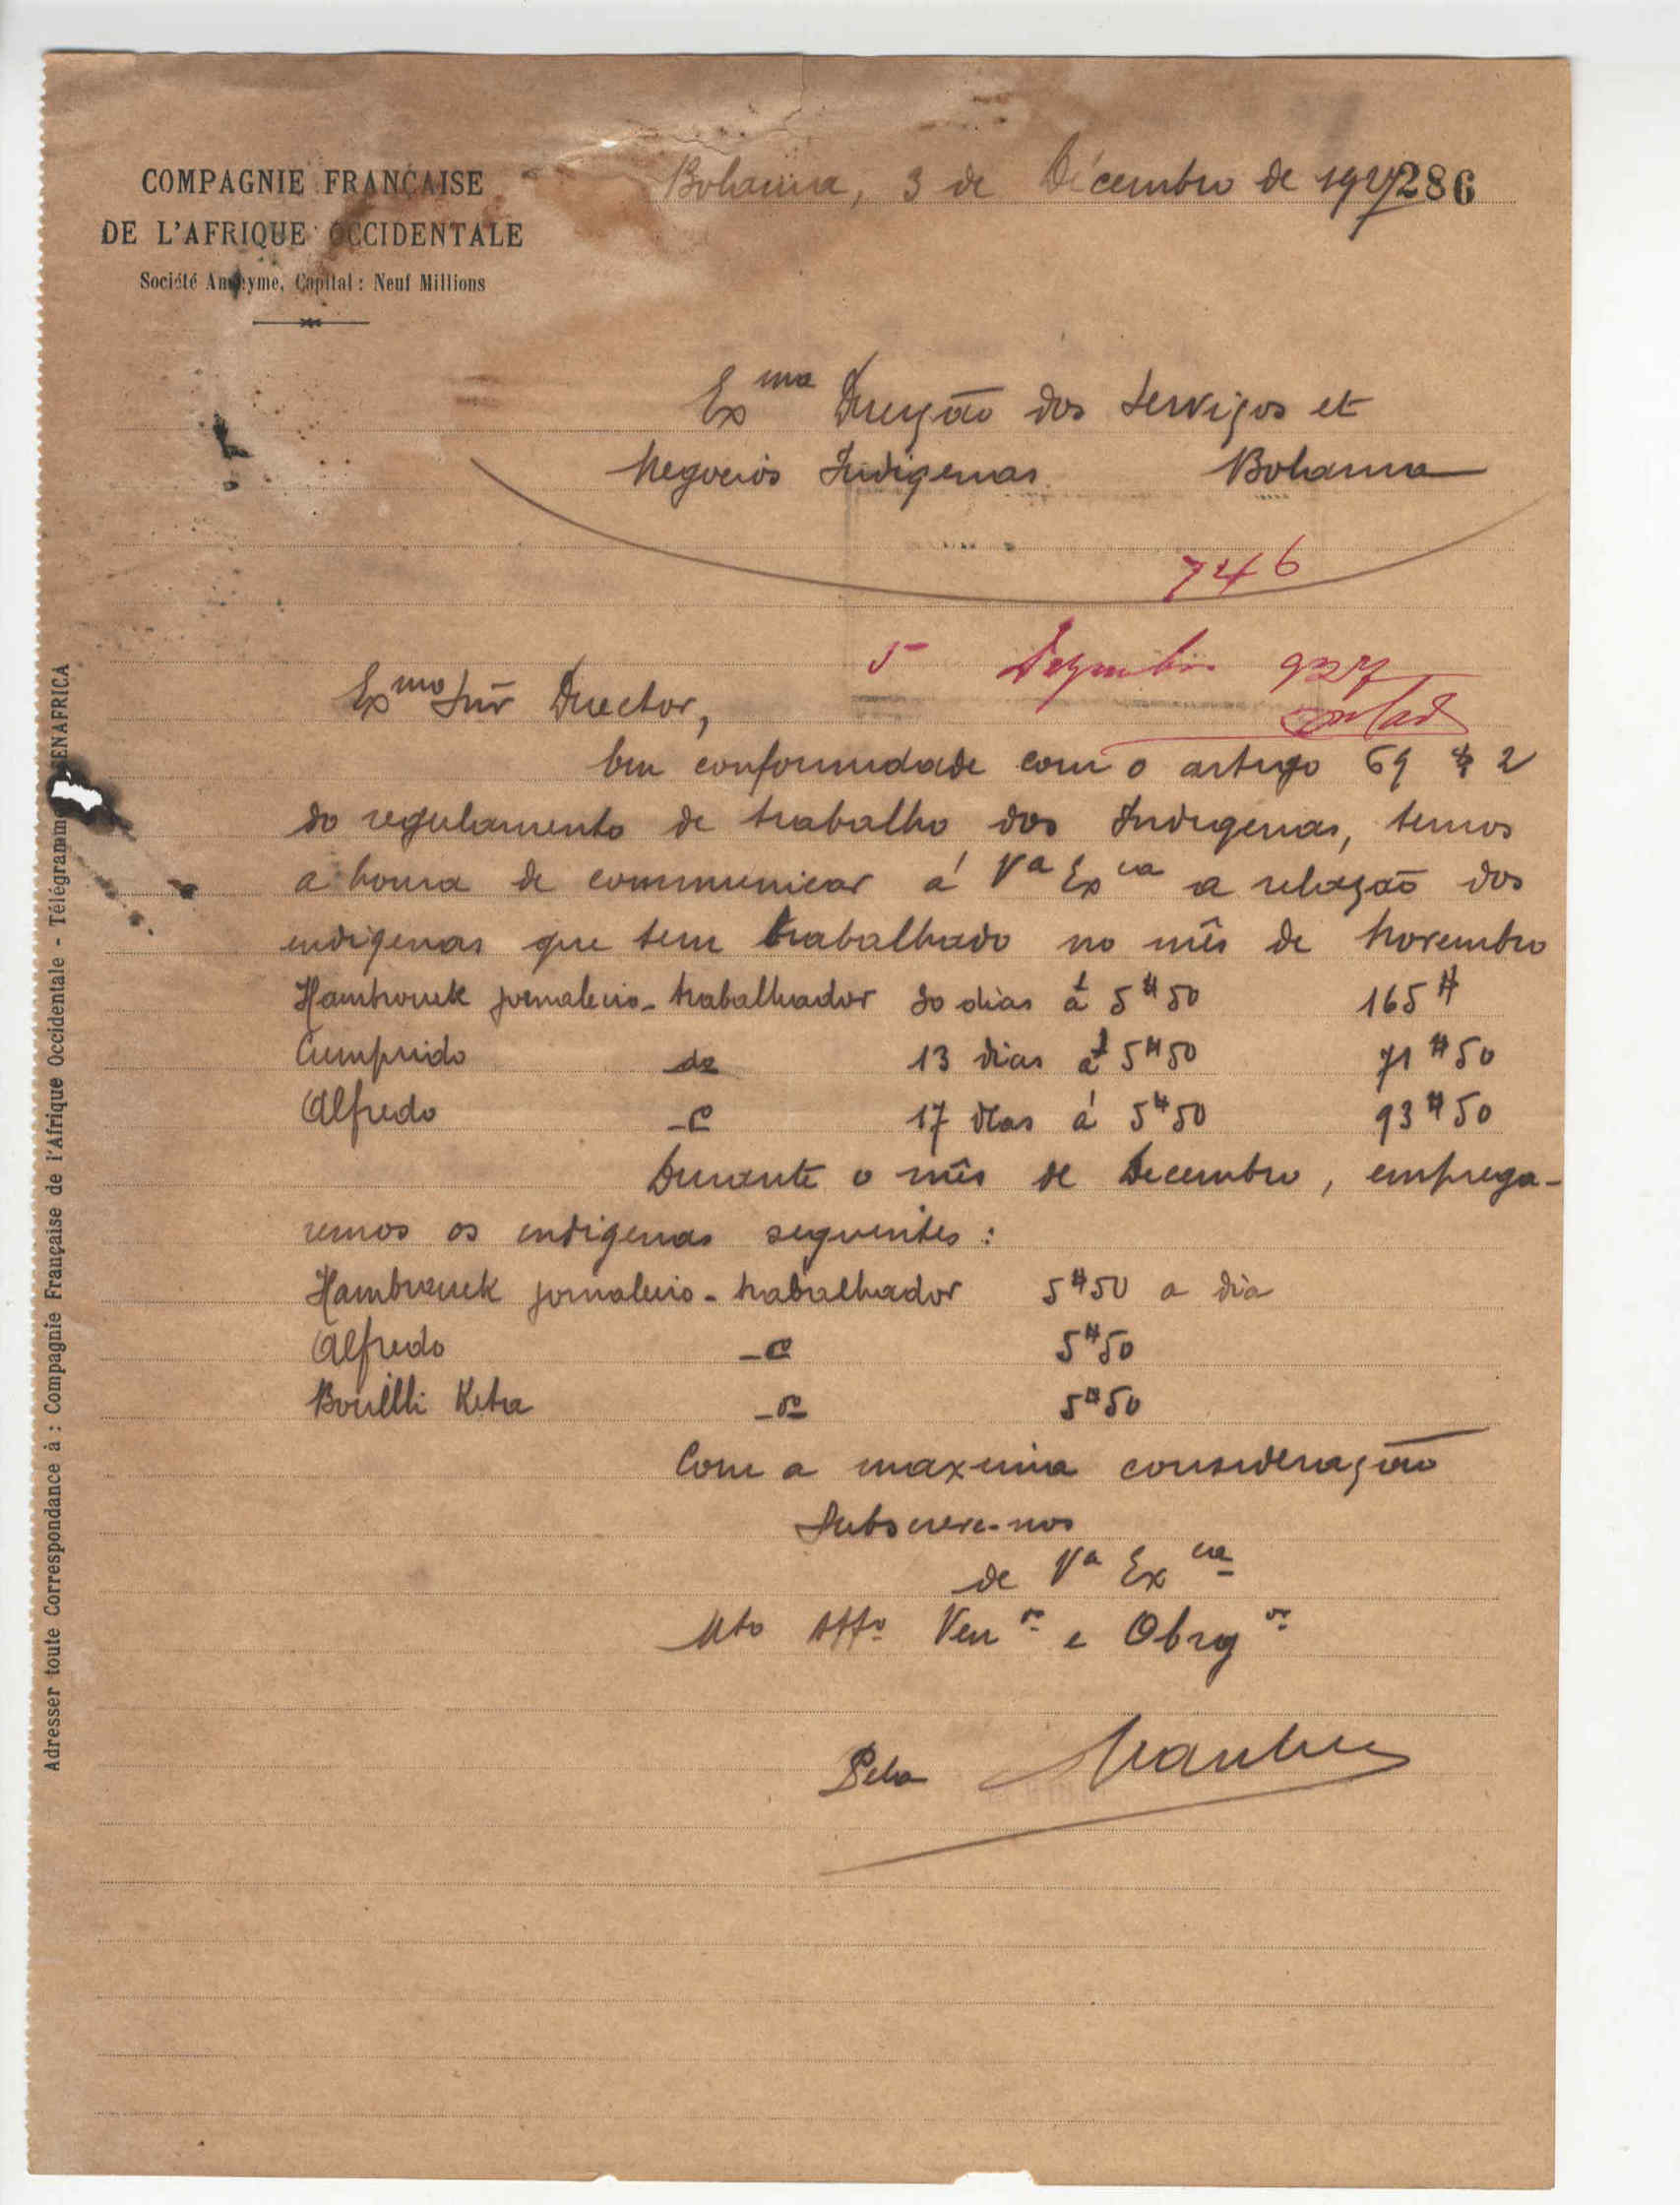 COMPAGNIE FRANÇAISE
DE L'AFRIQUE OCCIDENTALE
Société Anonyme, Capital : Neuf Millions
Bolama, 3 de Décembro de 1927
286
Ex ma Direção dos Serviços et
Negocios Indigenas Bolama
746
5 Dezembro 927
Ex mo Snr Director,
Em conformidade com o artigo 69 § 2
do regulamento de trabalho dos Indigenas, temos
a honra de communicar á Va Ex cia a relação dos
indigenas que tem trabalhado no mês de Novembro
Hambrouck jornaleiro - trabalhador 30 dias á 5$50 165$
Cumprido do 13 dias á 5$50 71$50
Alfredo 17 dias á 5$50 93$50
Durante o mês de Decembro, emprega-
remos os indigenas seguentes :
Hambrouck jornaleiro - trabalhador 5$50 a dia
Alfredo 5$50
Keita 5$50
Com a maxima consideração
Subscreve-nos
de Va Ex cia
Mto Atto Ven or e Obrg o
Pela
Adresser toute Correspondance à : Compagnie Française de l'Afrique Occidentale - Télégramme SENAFRICA